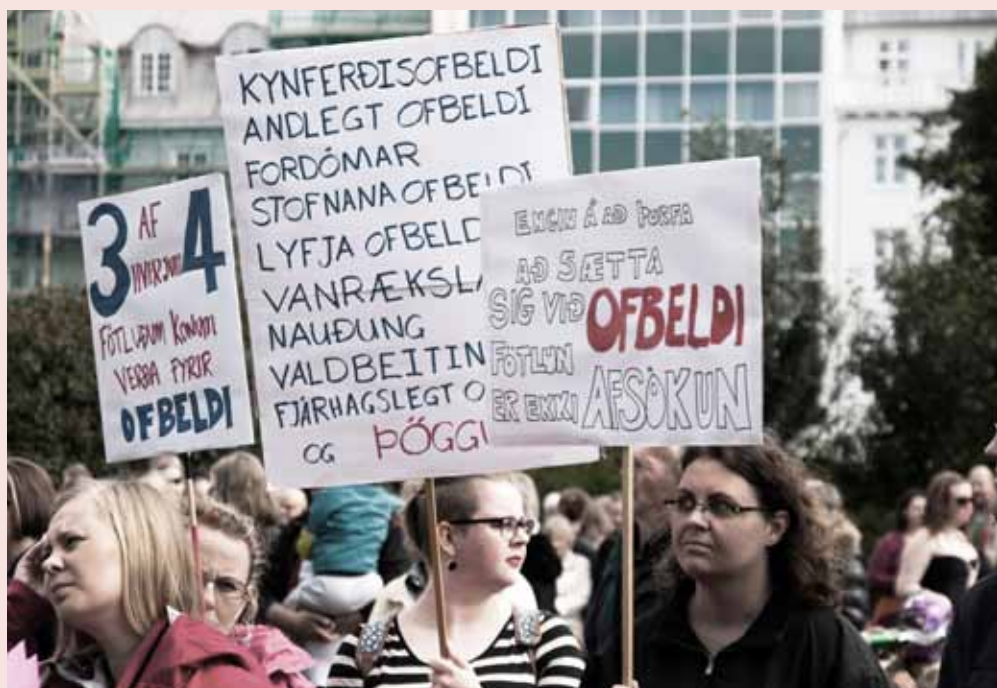 3 AF HVERJUM 4
FÖTLUÐUM KONUM
VERÐA FYRIR
OFBELDI
KYNFERÐISOFBELDI
ANDLEGT OFBELDI
FORDÓMAR
STOFNANA OFBELDI
LYFJA OFBELD
VANRÆKSLA
NAUÐUNG
VALDBEITIN
FJÁRHAGSLEGT O
OG ÞÖGG
ENGIN Á AÐ ÞURFA
AÐ SÆTTA
SIG VIÐ OFBELDI
FÖTLUN
ER EKKI AFSÖKUN